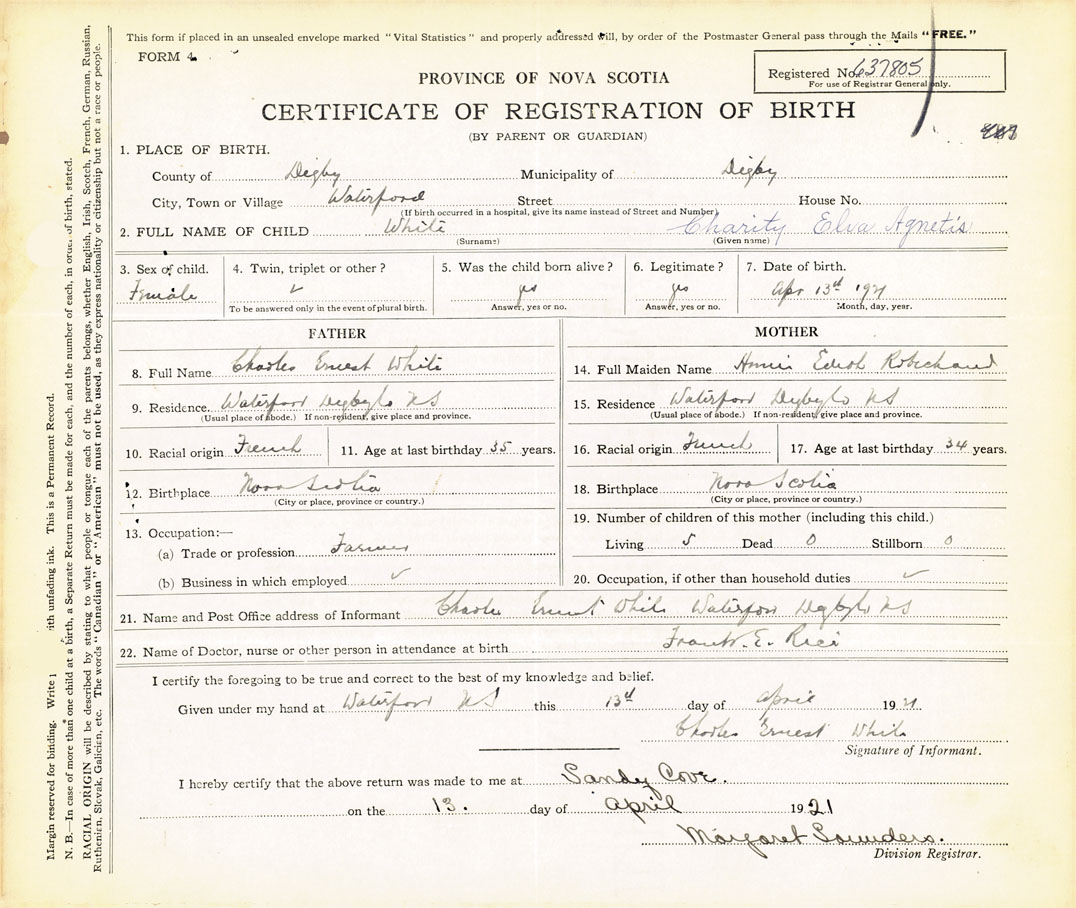 This form if placed in an unsealed envelope marked "Vital Statistics" and properly addressed will, by order of the Postmaster General pass through the Mails "FREE."
FORM 4.
Registered No. 637805
For use of Registrar General only.
PROVINCE OF NOVA SCOTIA
CERTIFICATE OF REGISTRATION OF BIRTH
(BY PARENT OR GUARDIAN)
1. PLACE OF BIRTH.
County of Digby Municipality of Digby
City, Town or Village Waterford Street House No.
(If birth occurred in a hospital, give its name instead of Street and Number)
2. FULL NAME OF CHILD White Charity Elva Agnetis
(Surname) (Given name)
3. Sex of child. 4. Twin, triplet or other? 5. Was the child born alive? 6. Legitimate? 7. Date of birth.
Female yes yes Apr 13th 1921
To be answered only in the event of plural birth. Answer, yes or no. Answer, yes or no. Month, day, year.
FATHER MOTHER
8. Full Name Charles Ernest White
14. Full Maiden Name Annie Edith Robichaud
9. Residence. Waterford Digby Co NS
15. Residence Waterford Digby Co NS
(Usual place of abode.) If non-resident, give place and province.
(Usual place of abode.) If non-resident, give place and province.
10. Racial origin French 11. Age at last birthday 35 years.
16. Racial origin French 17. Age at last birthday 34 years.
12. Birthplace Nova Scotia
18. Birthplace Nova Scotia
(City or place, province or country.)
(City or place, province or country.)
13. Occupation:—
19. Number of children of this mother (including this child.)
(a) Trade or profession Farmer
Living 5 Dead 0 Stillborn 0
(b) Business in which employed
20. Occupation, if other than household duties
21. Name and Post Office address of Informant Charles Ernest White Waterford Digby Co NS
22. Name of Doctor, nurse or other person in attendance at birth Frank. E. Rice
I certify the foregoing to be true and correct to the best of my knowledge and belief.
Given under my hand at Waterford NS this 13th day of April 1921
Charles Ernest White
Signature of Informant.
I hereby certify that the above return was made to me at Sandy Cove.
on the 13. day of April 1921
Margaret Saunders.
Division Registrar.
Margin reserved for binding. Write ith unfading ink. This is a Permanent Record.
N. B.—In case of more than one child at a birth, a Separate Return must be made for each, and the number of each, in order of birth, stated.
RACIAL ORIGIN will be described by stating to what people or tongue each of the parents belongs, whether English, Irish, Scotch, French, German, Russian,
Ruthenien, Slovak, Galicien, etc. The words "Canadian" or "American" must not be used, as they express nationality or citizenship but not a race or people.